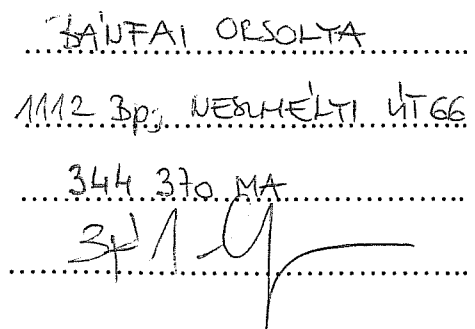 BÁNFAI ORSOLYA
1112 Bp., NESZMÉLYI ÚT 66
344 370 MA